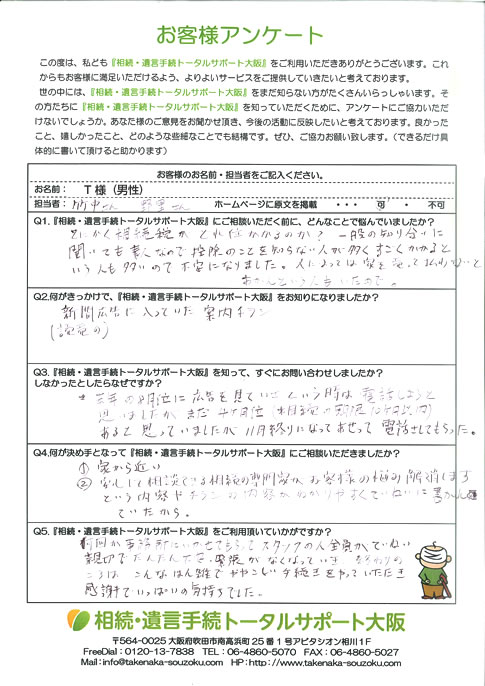 お客様アンケート
この度は、私ども『相続・遺言手続トータルサポート大阪』をご利用いただきありがとうございます。これ
からもお客様に満足いただけるよう、よりよいサービスをご提供していきたいと考えております。
世の中には、『相続・遺言手続トータルサポート大阪』をまだ知らない方がたくさんいらっしゃいます。そ
の方たちに『相続・遺言手続トータルサポート大阪』を知っていただくために、アンケートにご協力いただ
けないでしょうか。あなた様のご意見をお聞かせ頂き、今後の活動に反映したいと考えております。良かった
こと、嬉しかったこと、どのような些細なことでも結構です。ぜひ、ご協力お願い致します。（できるだけ具
体的に書いて頂けると助かります）
お客様のお名前・担当者をご記入ください。
お名前： T 様（男性）
担当者： 竹中さん さん ホームページに原文を掲載 ・・・ 可 ・ 不可
Q1.『相続・遺言手続トータルサポート大阪』にご相談いただく前に、どんなことで悩んでいましたか？
とにかく相続税が どれ位かかるのか？ 一般の知り合いに
聞いても素人なので控除のことを知らない人が多くすごくかかると
いう人も多いので不安になりました。人によっては家を売って払わないと
Q2.何がきっかけで、『相続・遺言手続トータルサポート大阪』をお知りになりましたか？
新聞広告に入っていた 案内チラシ
（読売の）
Q3.『相続・遺言手続トータルサポート大阪』を知って、すぐにお問い合わせしましたか？
しなかったとしたらなぜですか？
8月位に広告を見ていたという時は 電話しようと
思いましたが まだ 4ヶ月位（相続の期限10ヶ月以内）
あると思っていましたが 11月終りになってあせって電話させてもらった。
Q4.何が決め手となって『相続・遺言手続トータルサポート大阪』にご相談いただきましたか？
① 家から近い
② 安心して相談できる相続の専門家が お客様の悩み解消します
という内容やチラシの内容がわかりやすくていねいに書かれ
ていたから。
Q5.『相続・遺言手続トータルサポート大阪』をご利用頂いていかがですか？
何回か事務所にいかせてもらって スタッフの人全員が ていねい
親切でだんだん不安、緊張がなくなっていき 終わりの
ころは こんなはん雑でややこしい手続きをやっていただき
感謝でいっぱいの気持ちでした。
相続・遺言手続トータルサポート大阪
〒564-0025 大阪府吹田市南高浜町 25 番 1 号アビタシオン相川 1F
FreeDial：0120-13-7838 TEL：06-4860-5070 FAX：06-4860-5027
Mail：info@takenaka-souzoku.com HP：http://www.takenaka-souzoku.com